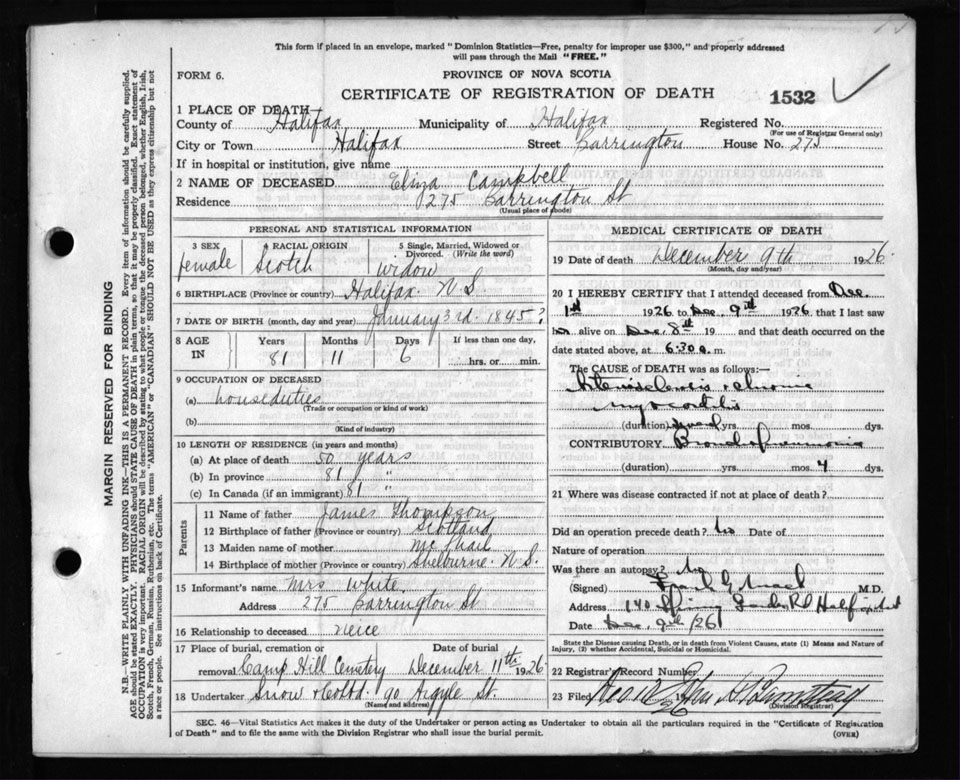 This form if placed in an envelope, marked "Dominion Statistics—Free, penalty for improper use $300," and properly addressed
will pass through the Mail "FREE."
FORM 6.
PROVINCE OF NOVA SCOTIA
CERTIFICATE OF REGISTRATION OF DEATH
1532
1 PLACE OF DEATH
County of Halifax Municipality of Halifax Registered No.
(For use of Registrar General only)
City or Town Halifax Street Barrington House No. 275
If in hospital or institution, give name
2 NAME OF DECEASED Eliza Campbell
Residence 275 Barrington St
(Usual place of abode)
PERSONAL AND STATISTICAL INFORMATION
3 SEX RACIAL ORIGIN 5 Single, Married, Widowed or
Divorced. (Write the word)
female Scotch Widow
6 BIRTHPLACE (Province or country) Halifax N S
7 DATE OF BIRTH (month, day and year) January 3rd. 1845?
8 AGE IN Years Months Days If less than one day,
81 11 6 hrs. or min.
9 OCCUPATION OF DECEASED
(a) houseduties
(Trade or occupation or kind of work)
(b)
(Kind of industry)
10 LENGTH OF RESIDENCE (in years and months)
(a) At place of death 50 years
(b) In province 81 "
(c) In Canada (if an immigrant) 81 "
Parents
11 Name of father James Thompson
12 Birthplace of father (Province or country) Scotland
13 Maiden name of mother McPhail
14 Birthplace of mother (Province or country) Shelburne. N S.
15 Informant's name Mrs White
Address 275 Barrington St
16 Relationship to deceased neice
17 Place of burial, cremation or Date of burial
removal Camp Hill Cemetery December 11th 1926
18 Undertaker Snow & Co Ltd. 90 Argyle St.
(Name and address)
MEDICAL CERTIFICATE OF DEATH
19 Date of death December 9th 1926.
(Month, day and year)
20 I HEREBY CERTIFY that I attended deceased from Dec.
1st 1926 to Dec. 9th 1926, that I last saw
alive on Dec. 8th 19 and that death occurred on
date stated above, at 6.30 a. m.
The CAUSE of DEATH was as follows:—
Arteriosclerosis
myocarditis
(duration) yrs. mos. dys.
CONTRIBUTORY Bronchopneumonia
(duration) yrs. mos. 4 dys.
21 Where was disease contracted if not at place of death?
Did an operation precede death? No Date of
Nature of operation
Was there an autopsy? No
(Signed) M.D.
Address 140
Date Dec. 9th /26
State the Disease causing Death, or in death from Violent Causes, state (1) Means and Nature of
Injury, (2) whether Accidental, Suicidal or Homicidal.
22 Registrar's Record Number
23 Filed 19
(Division Registrar)
SEC. 46—Vital Statistics Act makes it the duty of the Undertaker or person acting as Undertaker to obtain all the particulars required in the "Certificate of Registration
of Death" and to file the same with the Division Registrar who shall issue the burial permit.
(OVER)
MARGIN RESERVED FOR BINDING
N.B.—WRITE PLAINLY WITH UNFADING INK—THIS IS A PERMANENT RECORD. Every item of information should be carefully supplied.
AGE should be stated EXACTLY. PHYSICIANS should STATE CAUSE OF DEATH in plain terms, so that it may be properly classified. Exact statement of
OCCUPATION is very important. RACIAL ORIGIN will be described by stating to what people or tongue the deceased person belonged, whether English, Irish,
Scotch, French, German, Russian, Ruthenian, etc. The terms "AMERICAN" or "CANADIAN" SHOULD NOT BE USED as they express citizenship but not
a race or people. See instructions on back of Certificate.